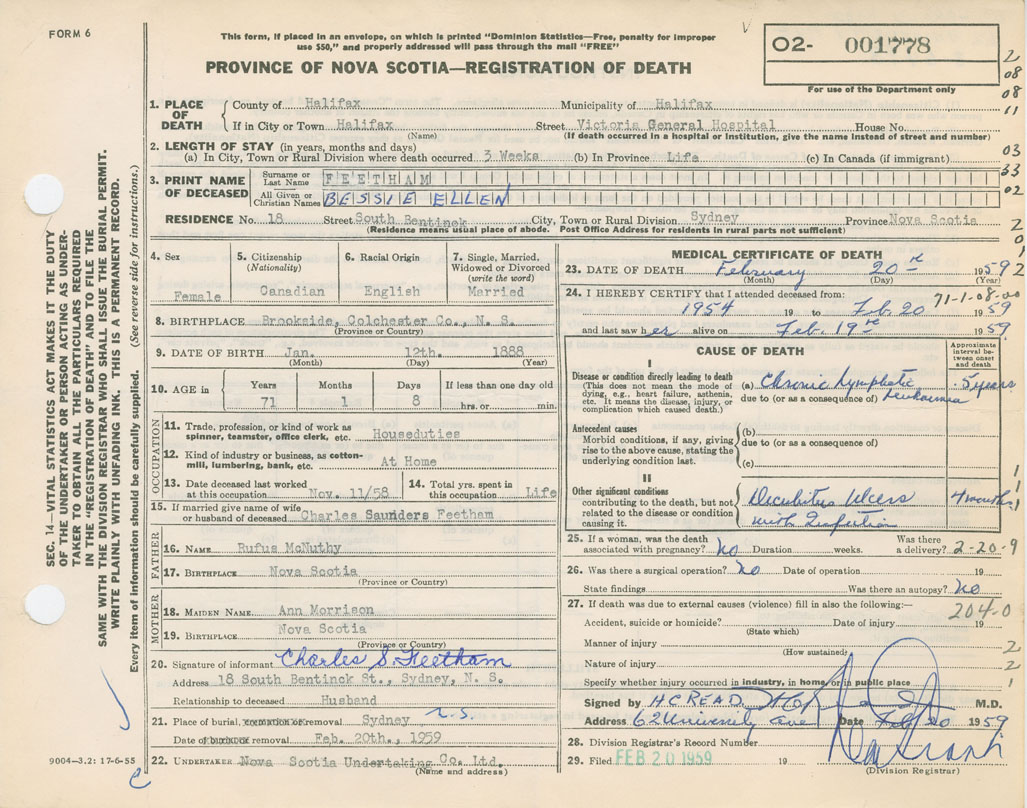 FORM 6
This form, if placed in an envelope, on which is printed "Dominion Statistics—Free, penalty for improper
use $50," and properly addressed will pass through the mail "FREE"
PROVINCE OF NOVA SCOTIA—REGISTRATION OF DEATH
02- 001778
For use of the Department only
2
08
08
11
03
33
02
2
0
9
2
SEC. 14—VITAL STATISTICS ACT MAKES IT THE DUTY
OF THE UNDERTAKER OR PERSON ACTING AS UNDER-
TAKER TO OBTAIN ALL THE PARTICULARS REQUIRED
IN THE "REGISTRATION OF DEATH" AND TO FILE THE
SAME WITH THE DIVISION REGISTRAR WHO SHALL ISSUE THE BURIAL PERMIT.
WRITE PLAINLY WITH UNFADING INK. THIS IS A PERMANENT RECORD.
Every item of information should be carefully supplied. (See reverse side for instructions.)
1. PLACE OF DEATH County of Halifax Municipality of Halifax
If in City or Town Halifax Street Victoria General Hospital House No.
(Name) (If death occurred in a hospital or institution, give the name instead of street and number)
2. LENGTH OF STAY (in years, months and days)
(a) In City, Town or Rural Division where death occurred 3 Weeks (b) In Province Life (c) In Canada (if immigrant)
3. PRINT NAME OF DECEASED Surname or Last Name FEETHAM
All Given or Christian Names BESSIE ELLEN
RESIDENCE No. 18 Street South Bentinck City, Town or Rural Division Sydney Province Nova Scotia
(Residence means usual place of abode. Post Office Address for residents in rural parts not sufficient)
4. Sex Female
5. Citizenship (Nationality) Canadian
6. Racial Origin English
7. Single, Married, Widowed or Divorced (write the word) Married
8. BIRTHPLACE Brookside, Colchester Co., N. S.
(Province or Country)
9. DATE OF BIRTH Jan. 12th. 1888
(Month) (Day) (Year)
10. AGE in Years Months Days If less than one day old
71 1 8 hrs. or min.
OCCUPATION
11. Trade, profession, or kind of work as
spinner, teamster, office clerk, etc. Houseduties
12. Kind of industry or business, as cotton-
mill, lumbering, bank, etc. At Home
13. Date deceased last worked
at this occupation Nov. 11/58
14. Total yrs. spent in
this occupation Life
15. If married give name of wife
or husband of deceased Charles Saunders Feetham
FATHER
16. NAME Rufus McNuthy
17. BIRTHPLACE Nova Scotia
(Province or Country)
MOTHER
18. MAIDEN NAME Ann Morrison
19. BIRTHPLACE Nova Scotia
(Province or Country)
20. Signature of informant Charles S. Feetham
Address 18 South Bentinck St., Sydney, N. S.
Relationship to deceased Husband
21. Place of burial, cremation or removal Sydney N.S.
Date of burial or removal Feb. 20th., 1959
22. UNDERTAKER Nova Scotia Undertaking Co. Ltd.
(Name and address)
9004—3.2: 17-6-55
MEDICAL CERTIFICATE OF DEATH
23. DATE OF DEATH February 20th 1959
(Month) (Day) (Year)
24. I HEREBY CERTIFY that I attended deceased from: 71-1-08-00
1954 19 to Feb. 20 1959
and last saw her alive on Feb. 19th 1959
CAUSE OF DEATH
Approximate interval between onset and death
I
Disease or condition directly leading to death
(This does not mean the mode of
dying, e.g., heart failure, asthenia,
etc. It means the disease, injury, or
complication which caused death.)
(a) Chronic Lymphatic Leukaemia 5 years
due to (or as a consequence of)
Antecedent causes
Morbid conditions, if any, giving
rise to the above cause, stating the
underlying condition last.
(b)
due to (or as a consequence of)
(c)
II
Other significant conditions
contributing to the death, but not
related to the disease or condition
causing it.
Decubitus Ulcers 4 months
with Infection
1
1
1
25. If a woman, was the death
associated with pregnancy? No Duration weeks. Was there
a delivery? 2-20-9
26. Was there a surgical operation? No Date of operation 19
State findings Was there an autopsy? No
27. If death was due to external causes (violence) fill in also the following:—
204-0
Accident, suicide or homicide? Date of injury 19
(State which)
Manner of injury 2
(How sustained)
Nature of injury 2
Specify whether injury occurred in industry, in home, or in public place 1
Signed by H C READ M.D.
Address 62 University Ave Date Feb 20 1959
28. Division Registrar's Record Number
29. Filed FEB 20 1959 19
(Division Registrar)